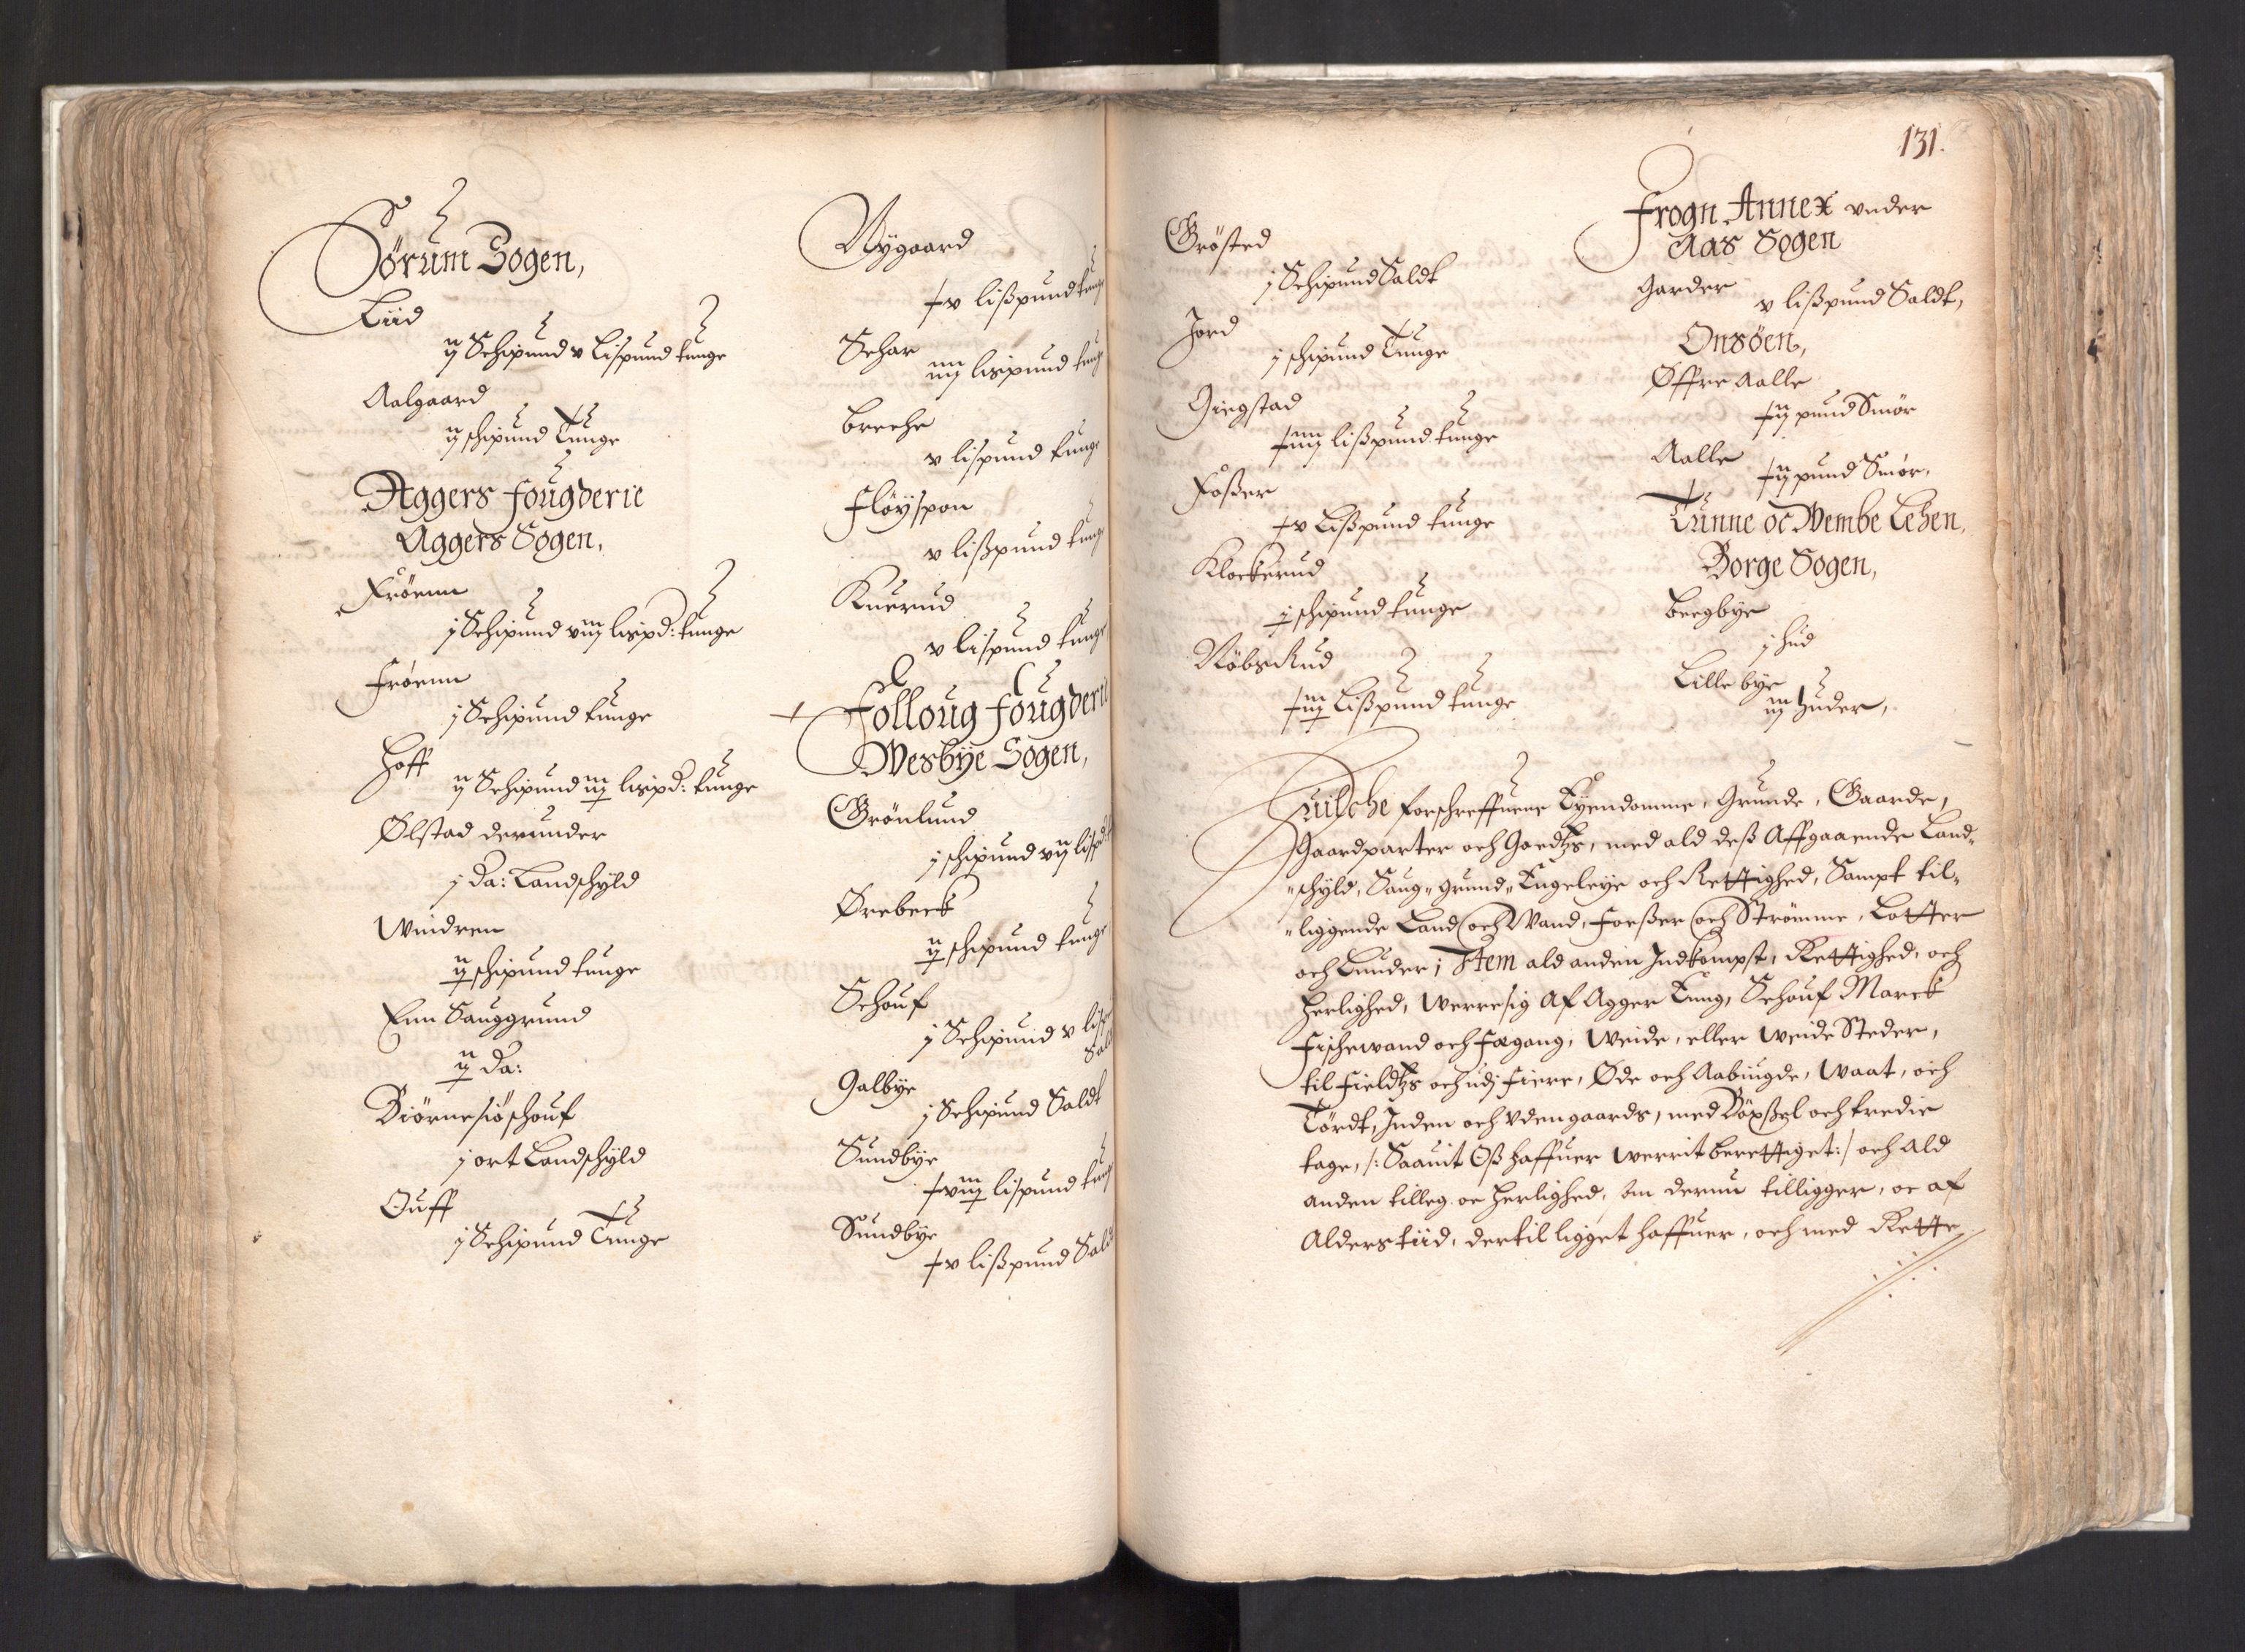 Sörum Sogen,
Liid
ij Schipund v Lispund tunge
Aalgaard
ij schipund Tunge
Aggers fougderie
Aggers Sogen,
Fröenn
j Schipund viij lispd: tunge
Fröenn
j Schipund tunge
Hoff
ij Schipund iij lispd: tunge
Ølstad derunder
j Da: Landschyld
Windren
ij schipund tunge
Enn Sauggrund
ij Da:
Biörnesiöschouf
j ort Landschyld
Ouff
j Schipund Tunge
Nygaard
v lißpund tunge
Schar
iiij lispund tunge
Breche
v lispund tunge
Fløyspon
v lißpund tunge
Knerud
v lispund tunge
Folloug fougderie
Wesbye Sogen,
Grönlund
j schipund vij lispd
Ørebeck
ij schipund tunge
Schouf
j Schipund v lisp
Saldt
Galbye
j Schipund Saldt
Sundbye
viij lispund tunge
Sundbye
v lißpund Saldt
131.
Grösted
j Schipund Saldt
Jord
j schipund Tunge
Giegstad
iiij lißpund tunge
Foßer
v Lißpund tunge
Klockerud
j schipund tunge
Röbsrud
iij Lißpund tunge
Frogn Annex vnder
Aas Sogen
Garder
v lißpund Saldt,
Onsöen,
Øffre Aalle
ij pund Smör
Aalle
ij pund Smör,
Tunne oc Wembe Lehen,
Borge Sogen,
Bergbye
j Hud
Lille bye
iij Huder,
Huilche forschreffuene Eyendomme, Grunde, Gaarde,
Gaardparter och Goedtzs, med ald deß Affgaaende Land-
"schyld, Saug- Grund- Engeleye och Rettighed, Sampt til-
"liggende Land och Wand, Foeßer och Strömme, Lotter
och Lunder; Item ald anden Indkompst, Rettighed, och
Herlighed, Werre sig Af Agger Eeng, Schouf Marck
Fischewand och Fægang, Weide, eller Weide Steder,
til Fieldtzs och udj Fiere, Øde och Aabiugde, Waat, och
Tördt, Inden och Vden gaards, med Böxßel och tredie
tage, /: Saauit Oß haffuer werrit berettiget :/ och Ald
anden tilleg oc Herlighed, som dernu tilligger, oc af
Alders tiid, der til ligget haffuer, och med Rette